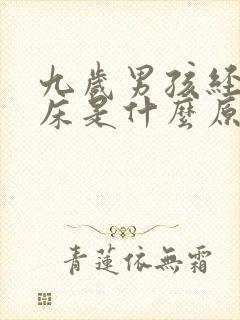 九歲男孩経
床是什麼原
青蓮依無霜